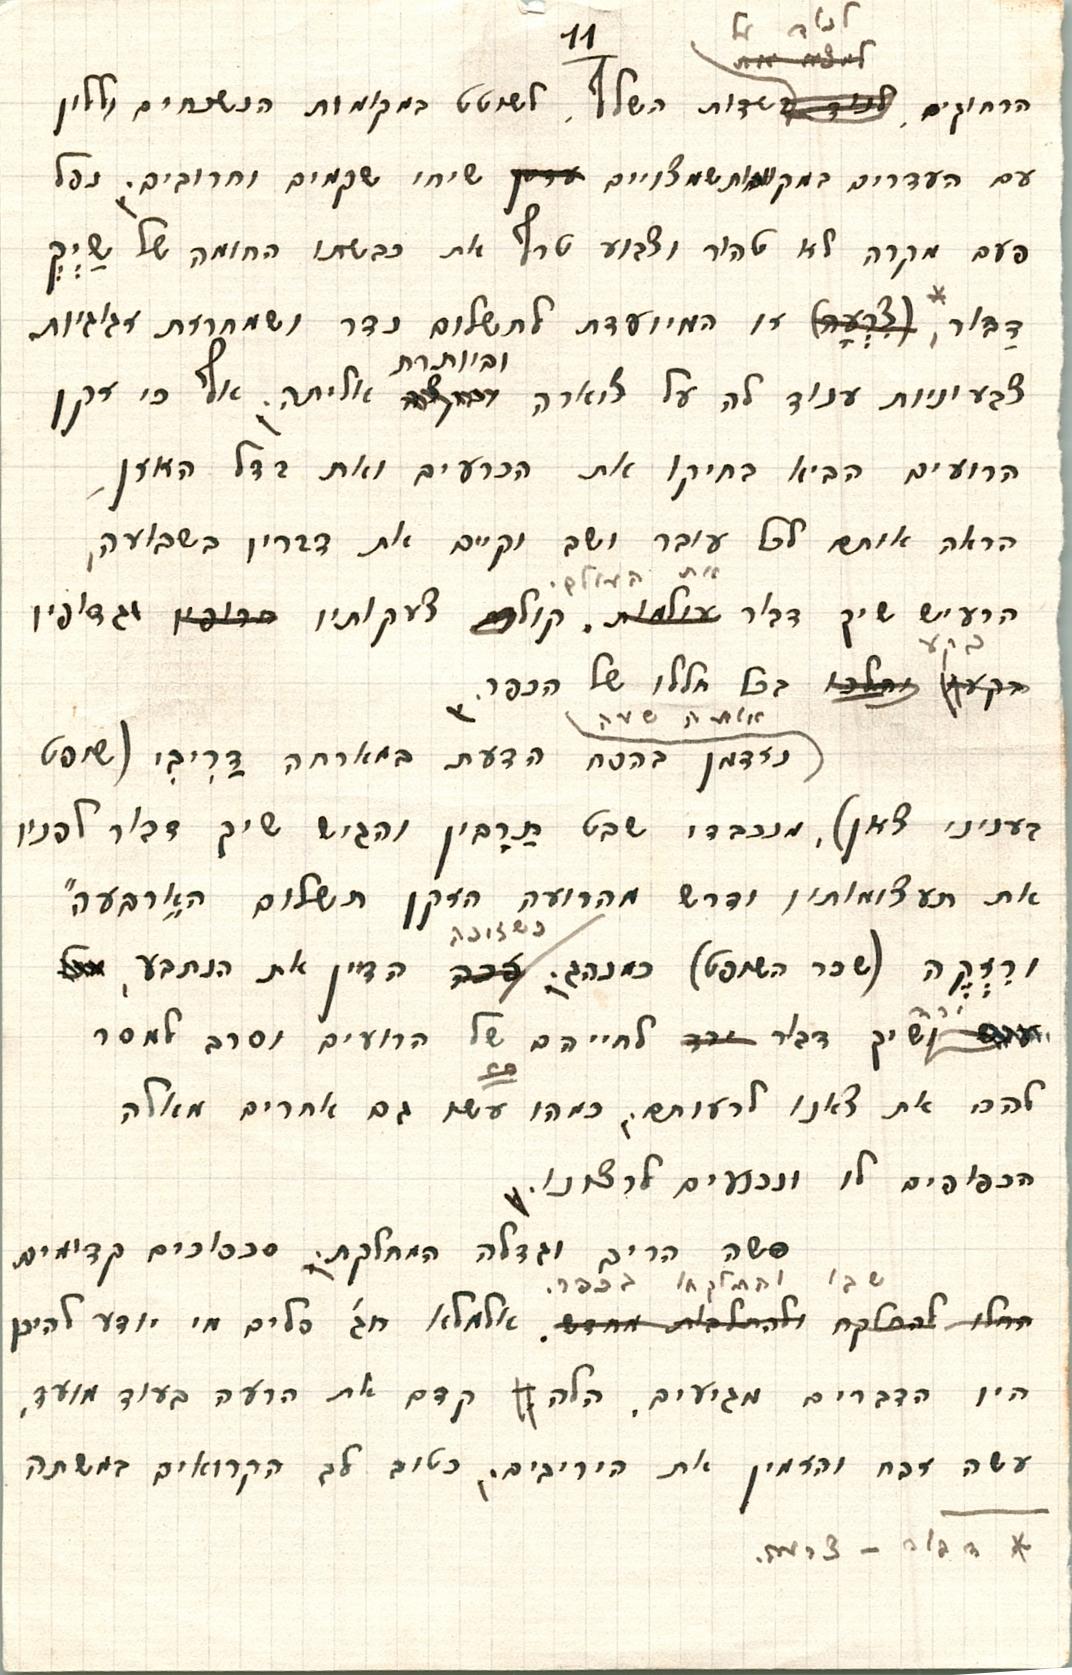 11
לנוד על
למצא את
הרחוקים, לנוד בשדות השלף, לשוטט במקומות הנשכחים וללון
עם העדרים במקומות שמצויים עדיין שיחי שקמים וחרובים. נפל
פעם מקרה לא טהור וצבוע טרף את כבשתו החומה של שַׁיְךְ
דַבּוּר,* (צִרְעָה) זו המיועדת לתשלום נדר ושמחרוזת זגוגיות
וביותרת
צבעוניות ענוד לה על צוארה ובקצה אליתה. אף כי זקן
הרועים הביא בחיקו את הכרעים ואת בדל האוזן,
הראה אותם לכל עובר ושב וקיים את דבריו בשבועה,
את העולם.
הרעיש שיך דבור עולמות. קולם צעקותיו חרופיו וגדופיו
בקע
בקעו והלכו בכל חללו של הכפר.
אותה שעה
נזדמן בהסח הדעת במארחה דַרִיבִּי (שופט
בעניני צאן), מנכבדי שבט תַרָבִּין והגיש שיך דבור לפניו
את תעצומותיו ודרש מהרועה הזקן תשלום "הארבעה"
כשזוכה
ורִזְקָה (שכר השופט) כמנהג. זכה הדיין את הנתבע,
ירד
ושיך דבור ירד לחייהם של הרועים וסרב למסר
להם את צאנו לרעותם, כמהו עשו גם אחרים מאלה
הכפופים לו ונכנעים לרצונו.
פשה הריב וגדלה המחלקת, סכסוכים קדומים
שבו והתלקחו בכפר.
החלו להתלקח ולהתלבות מחדש. אלמלא חג' סלים מי יודע להיכן
היו הדברים מגיעים, הלה קדם את הרעה בעוד מועד,
עשה זבח והזמין את היריבים. כטוב לב הקרואים במשתה
* דבור – צרעה.